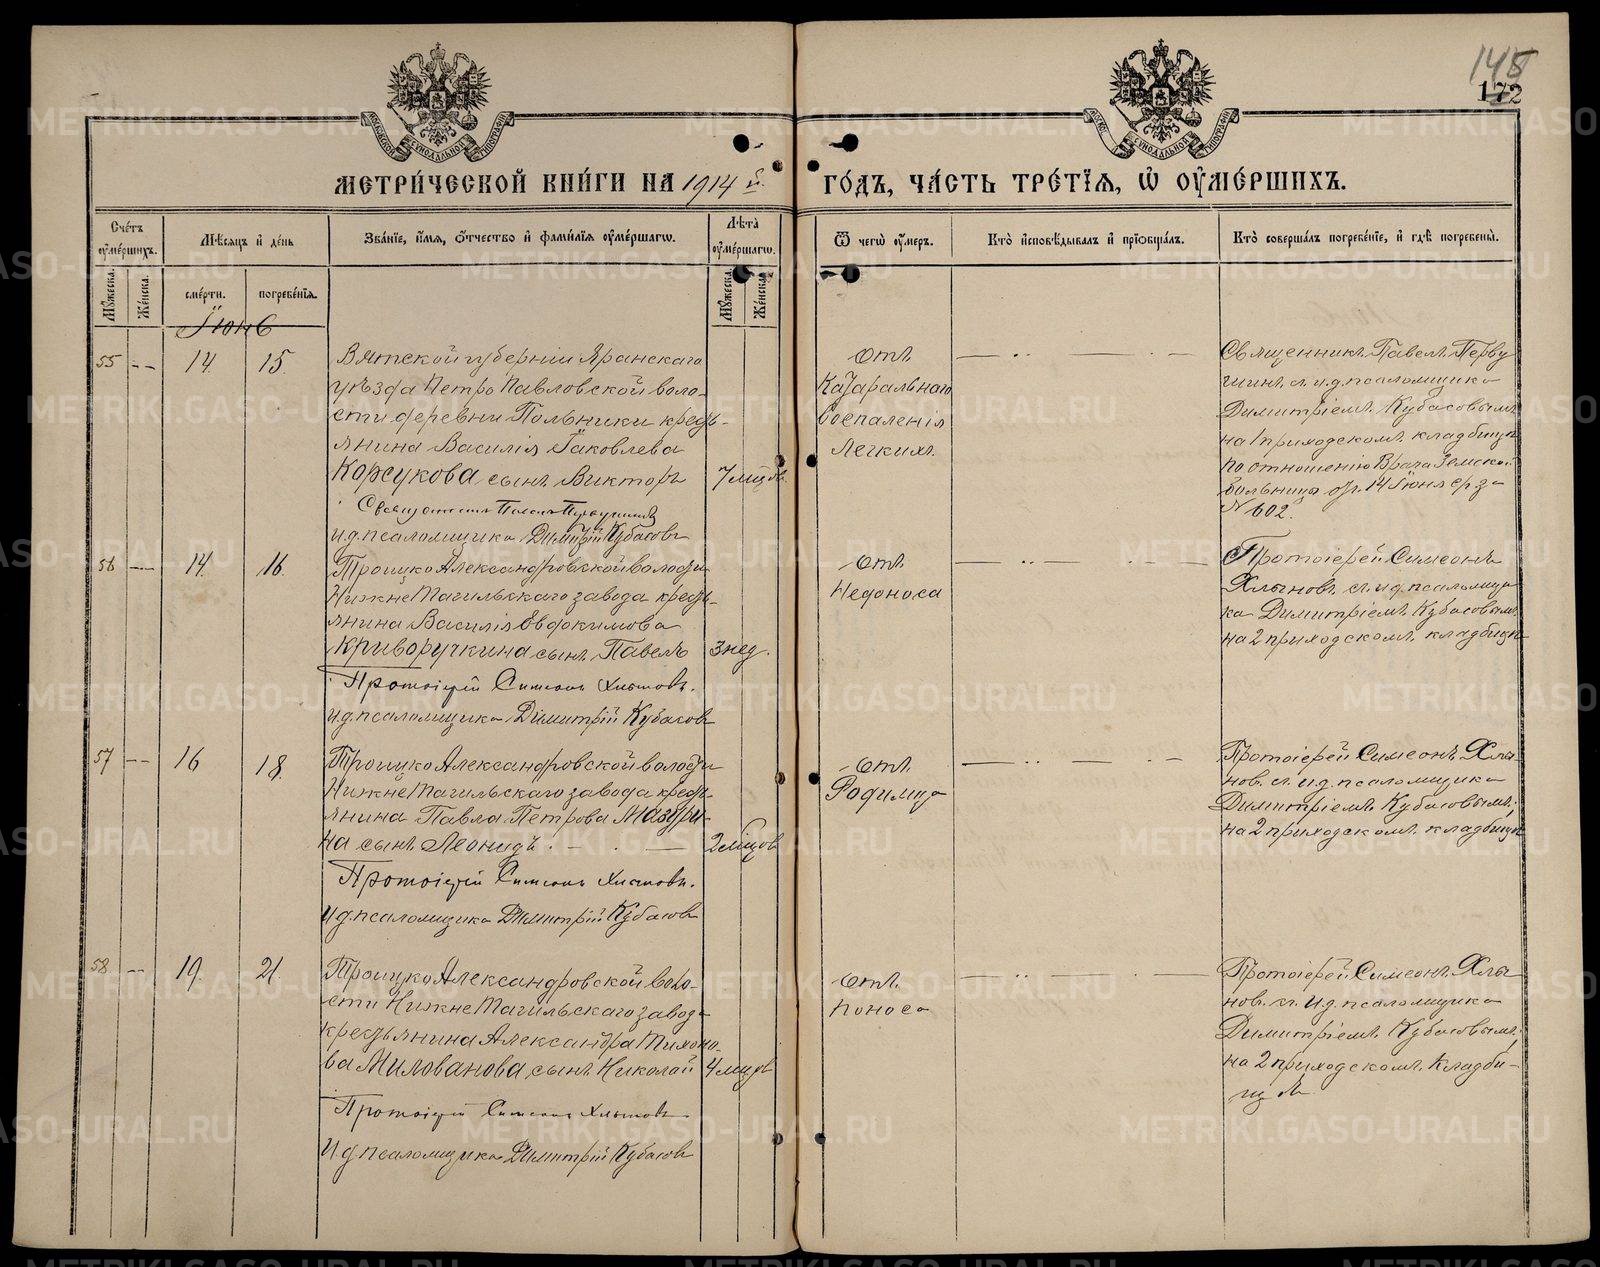 145
172
МЕТРИ́ЧЕСКОЙ КНИ́ГИ НА 1914 й. ГО́ДЪ, ЧА́СТЬ ТРЕ́ТІѦ, Ѡ҆ ОУ҆МЕ́РШИХЪ.
Сче́тъ оу҆ме́ршихъ.
Мѣ́сяцъ и҆ де́нь
Зва́нїе, и҆́мѧ, ѻ҆́тчество и҆ фами́лїѧ оу҆ме́ршагѡ.
Лѣ́та оу҆ме́ршагѡ.
Ѿ чегѡ̀ оу҆́меръ.
Кто̀ и҆сповѣ́дывалъ и҆ прїѡбща́лъ.
Кто̀ соверша́лъ погребе́нїе, и҆ гдѣ̀ погребены̀.
Мꙋ́жеска.
Же́нска.
сме́рти.
погребе́нїѧ.
Мꙋ́жеска.
Же́нска.
Іюнь
55 -- 14. 15.
Вятской губерніи Яранскаго
уѣзда Петро Павловской воло-
сти деревни Польники кресть-
янина Василія Іаковлева
Корсукова сынъ Викторъ
7 мѣцов
Священникъ Павелъ Первушинъ
и.д. псаломщика Димитрій Кубасовъ
отъ
Катаральнаго
воспаленія
легкихъ.
Священникъ Павелъ Перву
шинъ съ и.д. псаломщика
Димитріемъ Кубасовымъ
на 1 приходскомъ кладбищѣ
по отношенію Врача Земской
больницы отъ 14 Іюня с/г за
№ 602.
56 -- 14. 16.
Троицко Александровской волости
Нижне Тагильскаго завода кресть-
янина Василія Евдокимова
Криворучкина сынъ Павелъ
3 нед.
Протоіерей Симеонъ Хлыновъ.
и.д. псаломщика Димитрій Кубасовъ
отъ
Недоноса
Протоіерей Симеонъ
Хлыновъ съ и.д. псаломщи
ка Димитріемъ Кубасовымъ
на 2 приходскомъ кладбищѣ
57 -- 16 18.
Троицко Александровской волости
Нижне Тагильскаго завода кресть-
янина Павла Петрова Мазури-
на сынъ Леонидъ
2 мѣцов
Протоіерей Симеонъ Хлыновъ.
и.д. псаломщика Димитрій Кубасовъ
отъ
Родимца
Протоіерей Симеонъ Хлы-
новъ съ и.д. псаломщика
Димитріемъ Кубасовымъ
на 2 приходскомъ кладбищѣ
58 -- 19. 21.
Троицко Александровской воло-
сти Нижне Тагильскаго завода
крестьянина Александра Тихоно-
ва Милованова сынъ Николай
4 мѣцов
Протоіерей Симеонъ Хлыновъ
и.д. псаломщика Димитрій Кубасовъ
отъ
поноса
Протоіерей Симеонъ Хлы
новъ съ и.д. псаломщика
Димитріемъ Кубасовымъ
на 2 приходскомъ кладби-
щѣ
METRIKI.GASO-URAL.RU